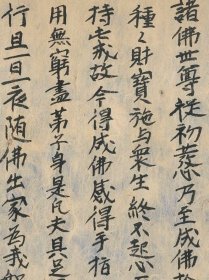 諸佛世尊從初發心乃至成佛於
種之財寶施与衆生終不起心
持七戒故今得成佛感得手指
用無窮盡弟子身是凡夫具足
行且一日一夜随佛出家為我